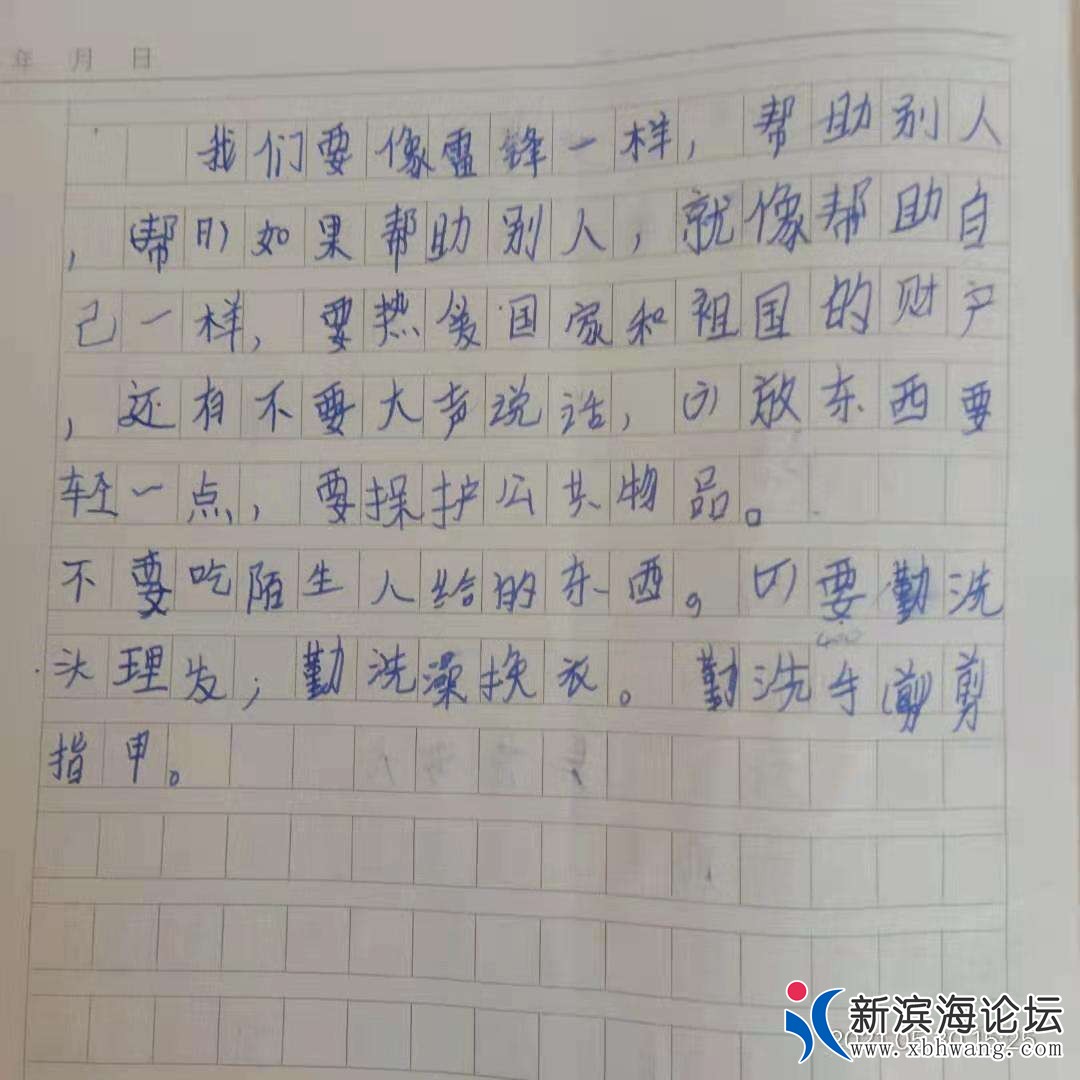 年 月 日
我们要像雷锋一样，帮助别人
，(帮日)如果帮助别人，就像帮助自
己一样，要热爱国家和祖国的财产
，还有不要大声说话，放东西要
轻一点，要保护公共物品。
不要吃陌生人给的东西。要勤洗
头理发，勤洗澡换衣。勤洗手(剪)剪
指甲。
新滨海论坛
2021.05.30 15:25
www.xbhwang.com